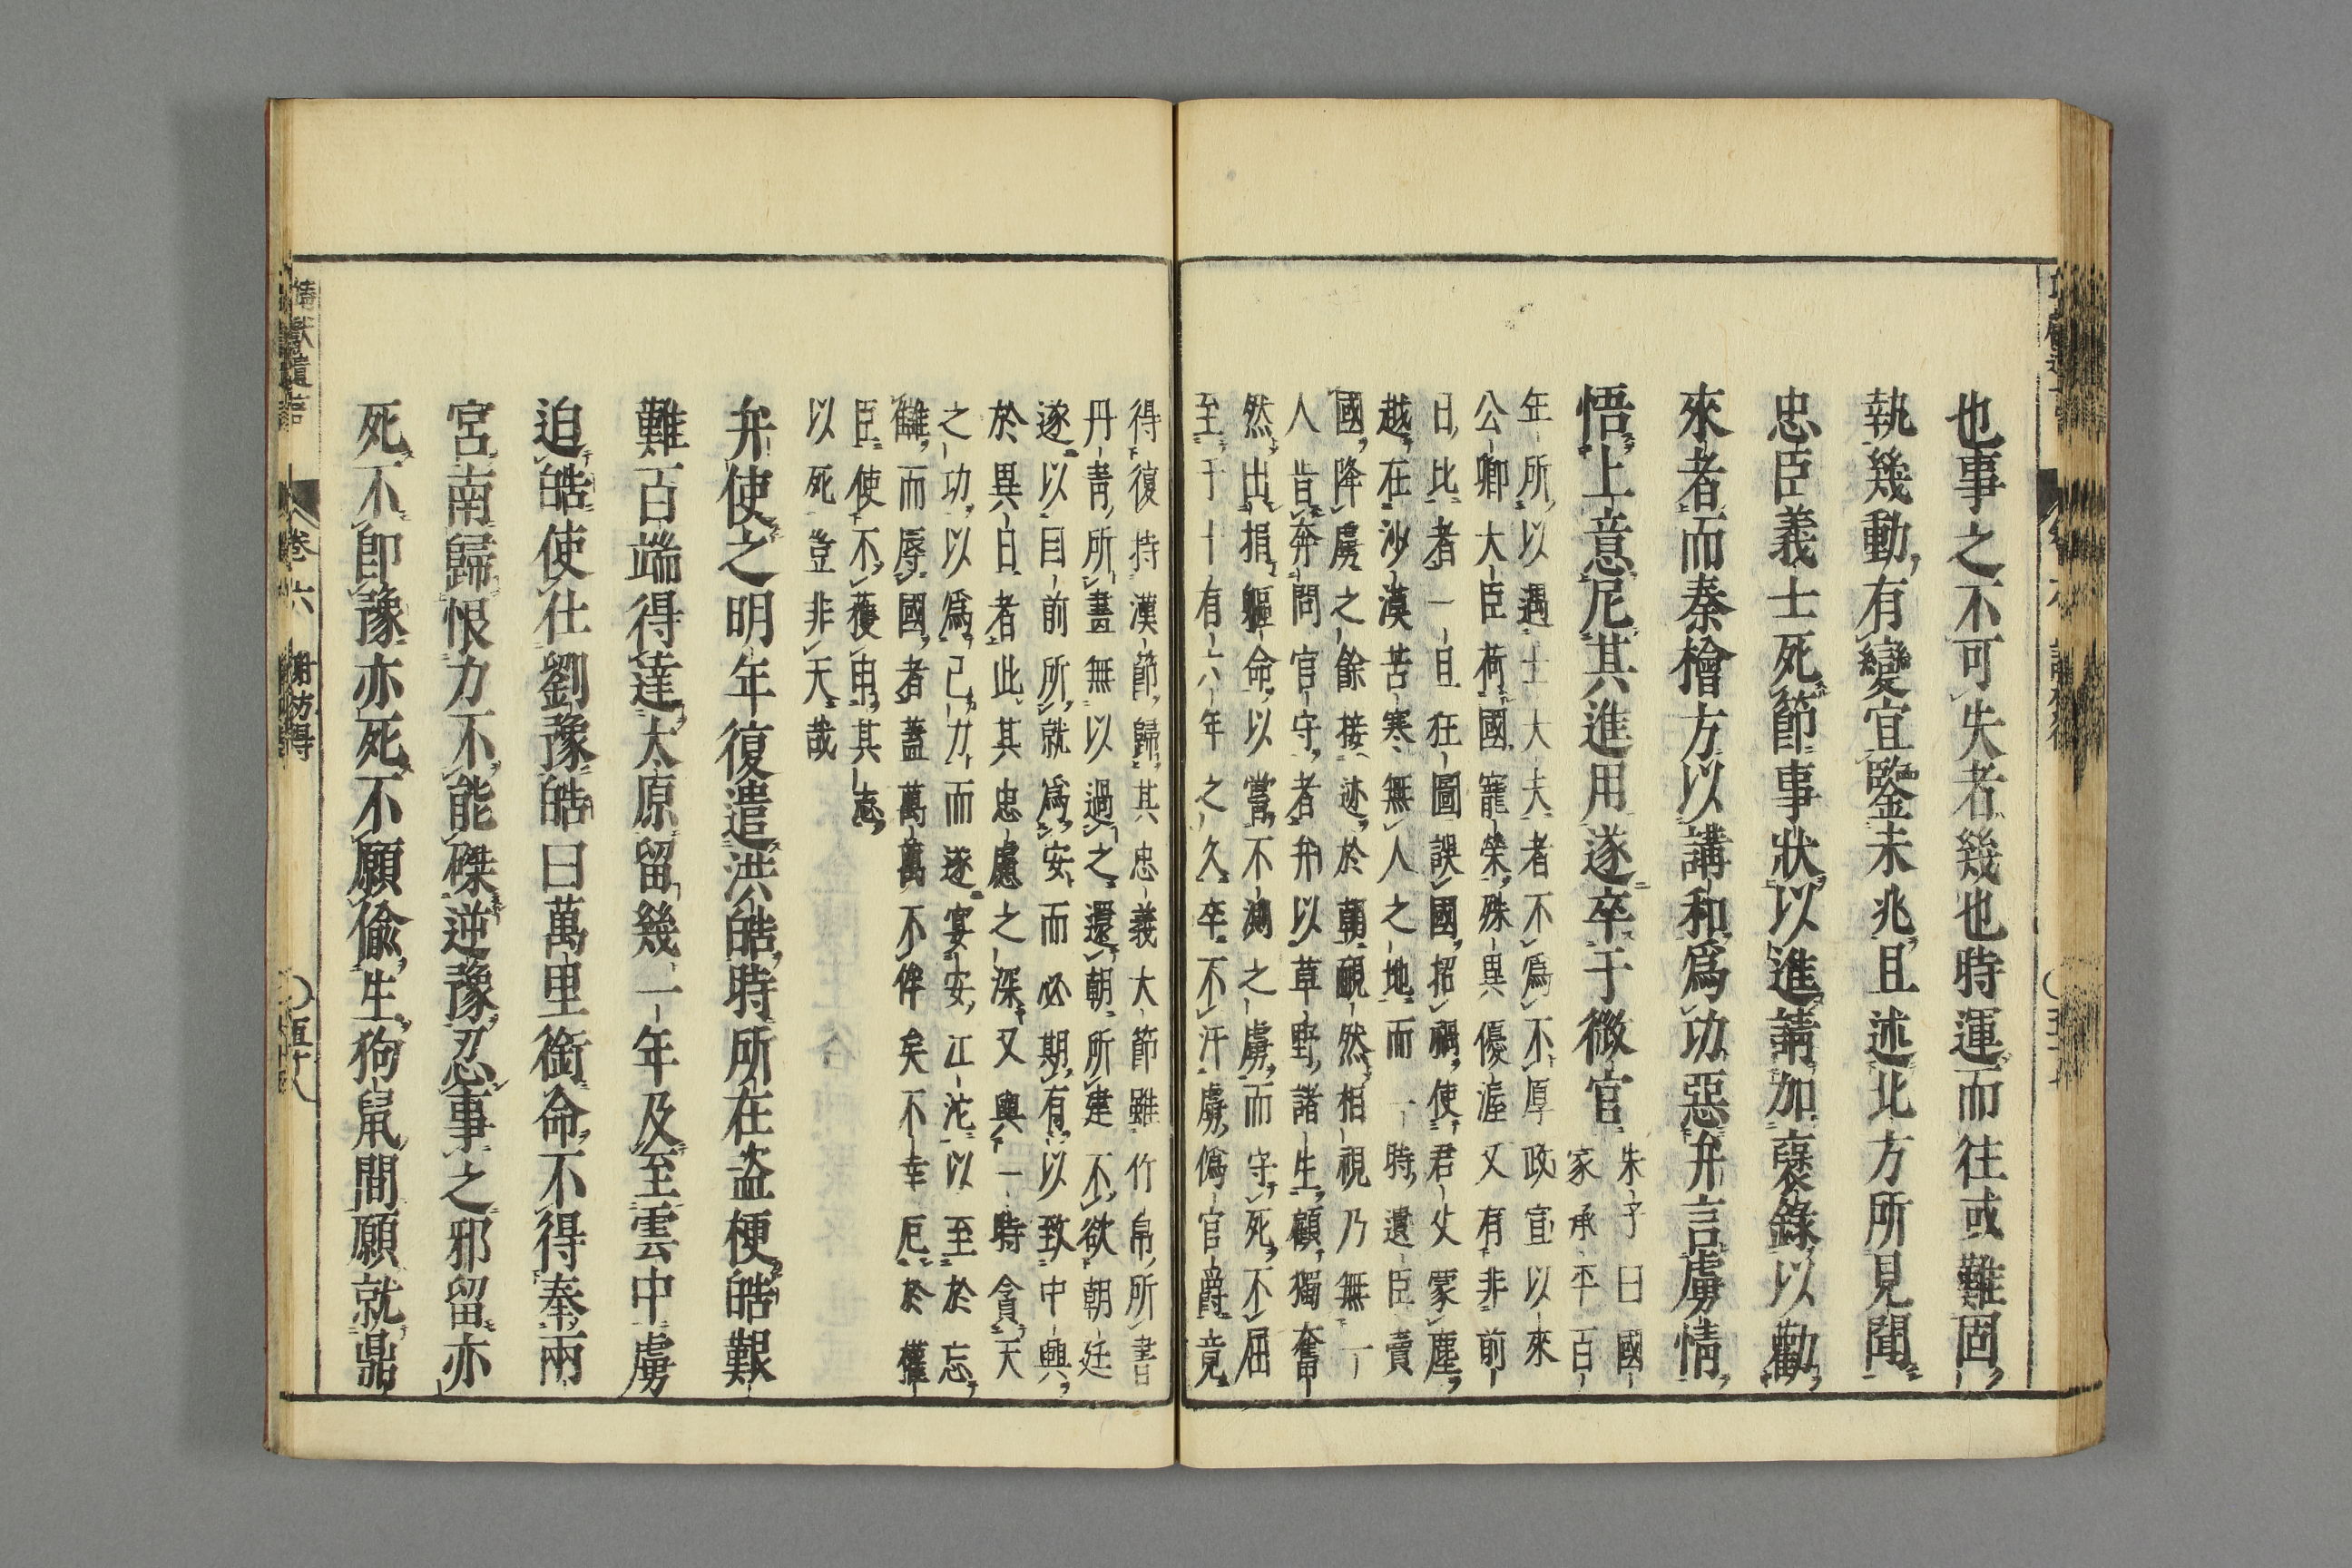 也事之不可失者幾也時運而往或難固
執幾動有變宜鑒未兆且述北方所見聞
忠臣義士死節事狀以進請加襃錄以勸
來者而秦檜方以講和爲功惡弁言虜情
悟上意尼其進用遂卒于微官
朱子曰國
家承平百
年所以遇士大夫者不爲不厚政宣以來
公卿大臣荷國寵榮殊異優渥又有非前
日比者一旦狂圖誤國招禍使君父蒙塵
越在沙漠苦寒無人之地而一時遺臣賣
國降虜之餘接迹於朝覥然相視乃無一
人肯奔問官守者弁以草野諸生顧獨奮
然出捐軀命以嘗不測之虜而守死不屈
至于十有六年之久卒不汗虜僞官爵竟
得復持漢節歸其忠義大節雖竹帛所書
丹靑所畫無以過之還朝所建不欲朝廷
遂以目前所就爲安而必期有以致中興
於異日者此其忠慮之深又與一時貪天
之功以爲己力而遂宴安江沱以至於忘
讎而辱國者蓋萬萬不侔矣不幸厄於權
臣使不獲申其志
以死豈非天哉
弁使之明年復遣洪皓時所在盗梗皓艱
難百端得達太原留幾一年及至雲中虜
迫皓使仕劉豫皓曰萬里銜命不得奉兩
宮南歸恨力不能磔逆豫忍事之邪留亦
死不卽豫亦死不願偸生狗鼠間願就鼎
靖獻遺言
卷六
謝枋得
五十八